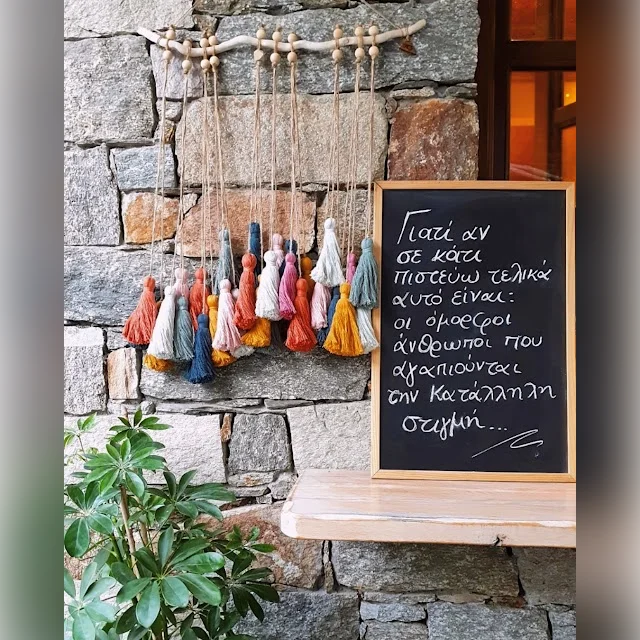 Γιατί αν
σε κάτι
πιστεύω τελικά
αυτό είναι:
οι όμορφοι
άνθρωποι που
αγαπιούνται
την Κατάλληλη
στιγμή...